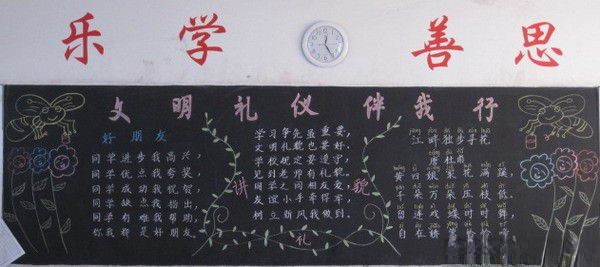 乐学 善思
文明礼仪伴我行
好朋友
同学进步我高兴，
同学优点我夸奖，
同学成功我祝贺，
同学缺点我指出，
同学有难我帮助，
你我都是好朋友。
学习争先虽重要，
文明礼貌也要好。
学校规定要遵守，
见到老师有礼貌。
同学之间相友爱，
友谊小手牵得牢。
树立新风我做到。
讲 礼 貌
江畔独步寻花
唐 杜甫
黄四娘家花满蹊，
千朵万朵压枝低。
留连戏蝶时时舞，
自在娇莺恰恰啼。